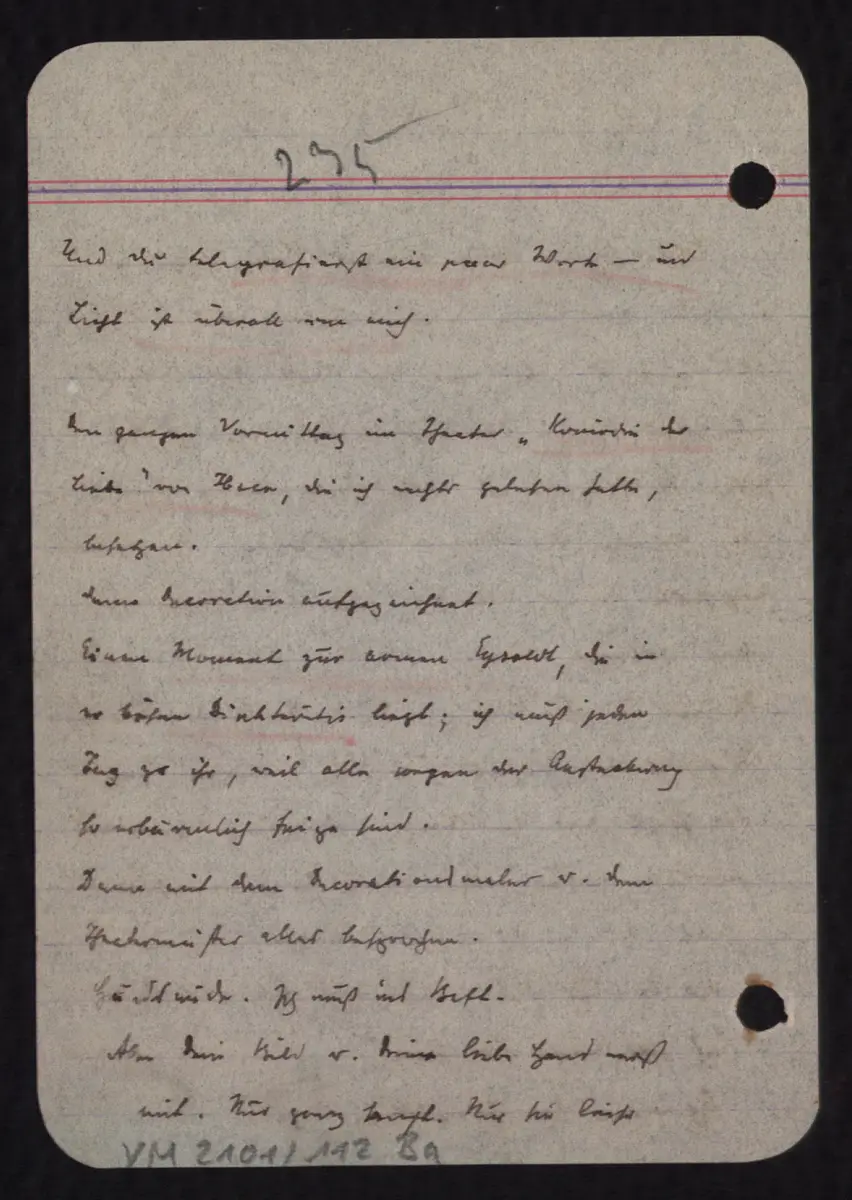 235
Und du telegrafierst ein paar Worte — und
Licht ist überall um mich.
Den ganzen Vormittag im Theater „Komödie der
Liebe" von Ibsen, die ich nachts gelesen hatte,
besetzen.
dann Decoration aufgezeichnet.
Einen Moment zur armen Eysoldt, die in
so böser Diphteritis liegt; ich muß jeden
Tag zu ihr, weil alle wegen der Ansteckung
so erbärmlich feige sind.
Dann mit dem Decorationsmaler u. dem
Theatermeister alles besprochen.
Hundemüde. Ich muß ins Bett.
Aber dein Bild u. deine liebe Hand muß
mit. Nur ganz sanft. Nur so leise
VM 2101/112 Ba